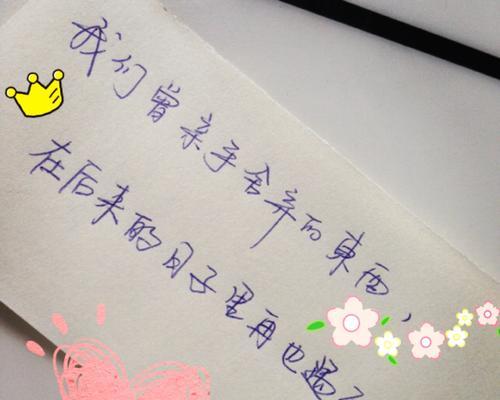 我们曾亲手舍弃的東西，
在后来的日子里再也遇